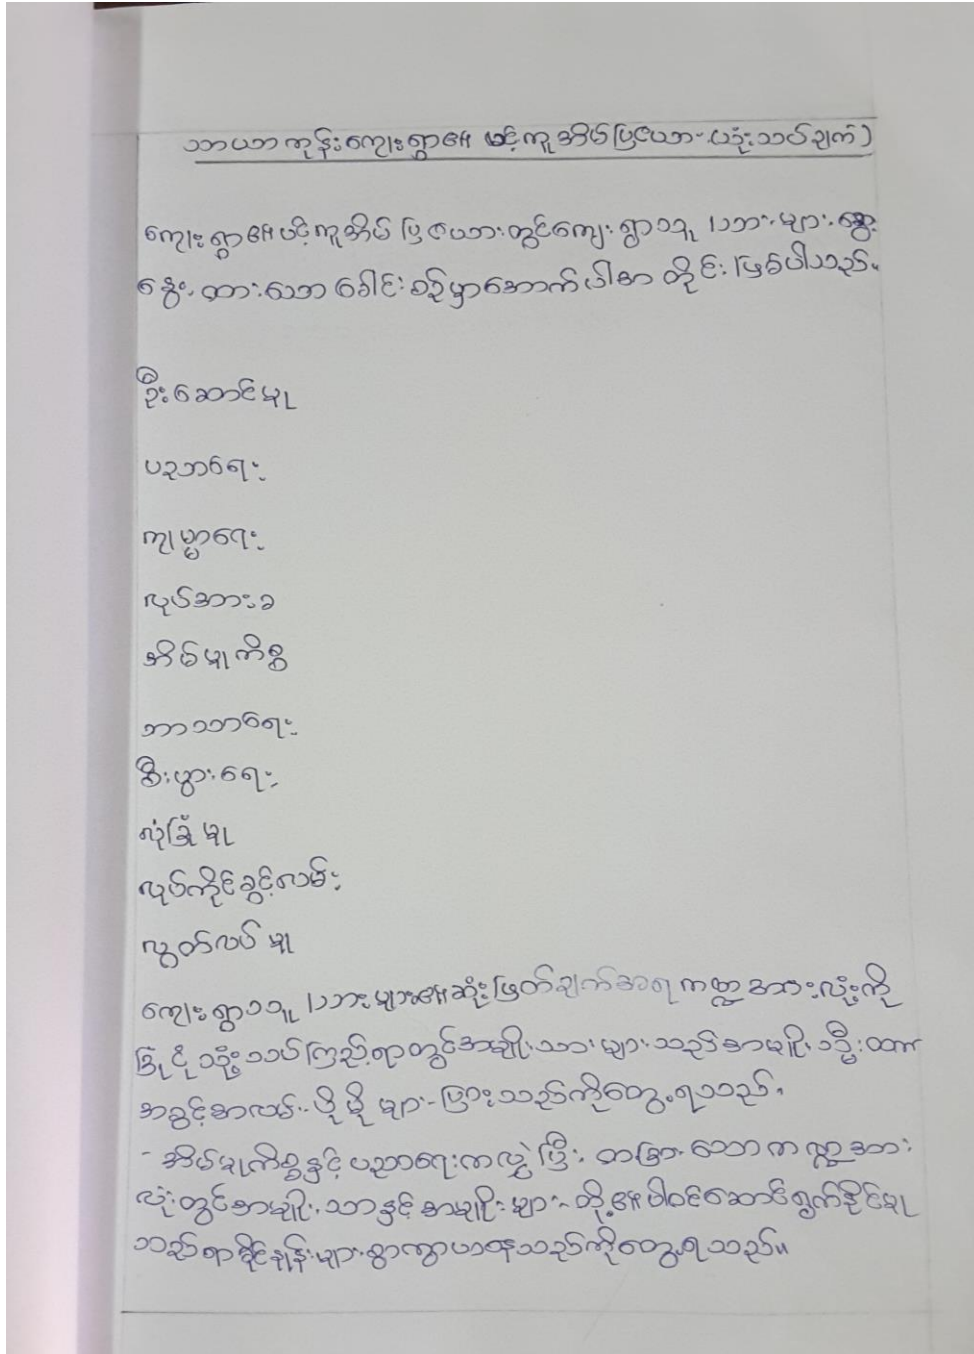 သာယာကုန်းကျေးရွာ၏ ပင့်ကူအိမ်ပြဇယား သုံးသပ်ချက်)
ကျေးရွာ၏ပင့်ကူအိမ် ပြဇယားတွင်ကျေးရွာသူ/သားများ ဆွေး
နွေးထားသော ခေါင်းစဉ်မှာအောက်ပါအတိုင်းဖြစ်ပါသည်။
ဦးဆောင်မှု
ပညာရေး
ကျမ္မာရေး
လုပ်အားခ
အိမ်မှုကိစ္စ
ဘာသာရေး
စီးပွားရေး
လုံခြုံမှု
လုပ်ကိုင်ခွင့်လမ်း
လွတ်လပ်မှု
ကျေးရွာသူ/သားများ၏ဆုံးဖြတ်ချက်အရ ကဏ္ဍအားလုံးကို
ခြုံငုံသုံးသပ်ကြည့်ရာတွင်အမျိုးသားများသည်အမျိုးသမီးထက်
အခွင့်အလမ်းပိုမိုများပြားသည်ကိုတွေ့ရသည်။
- အိမ်မှုကိစ္စနှင့်ပညာရေးကလွဲပြီး တခြားသောကဏ္ဍအား
လုံးတွင်အမျိုးသားနှင့်အမျိုးများတို့၏ပါဝင်ဆောင်ရွက်နိုင်မှု
သည်ရာခိုင်နှုန်းများစွာကွာဟနေသည်ကိုတွေ့ရသည်။